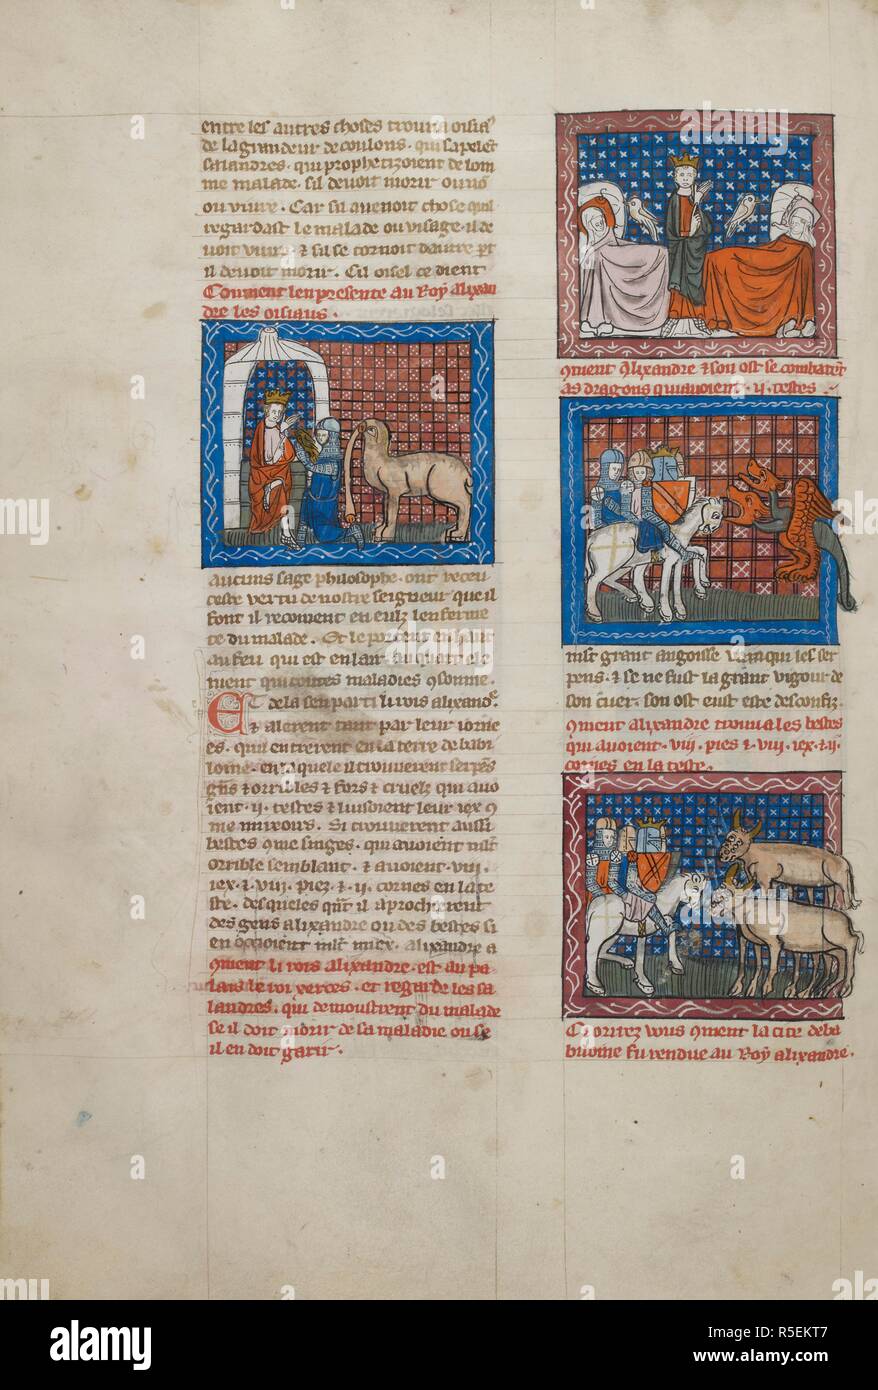 entre les autres choses trouua oisiax
de la grandeur de coulons. qui sapelent
salandres. qui prophetizoient de lom
me malade. sil deuoit morir ou no
ou viure. Car sil auenoit chose quil
regardast le malade ou visage. il de
uoit viure. & sil se tornoit dautre pt
il deuoit morir. Cil oisel ce dient
Coument len presente au Roy alixan
dre les oisiaus.
aucuns sage philosophe. ont receu
ceste vertu de nostre seigneur que il
font il recoiuent en eulz lenferme
te du malade. Et le portent en haut
au feu qui est en lair au quart ele
ment qui toutes maladies 9sonme.
ET de la sen parti li rois alixandre
& alerent tant par leur iorne
es. quil entrerent en la terre de babi
loine. en la quele il trouuerent serpens
grans & orribles & fors & cruelz qui auo
ient .ii. testes & luisoient leur iex 9
me mirours. Si trouuerent aussi
bestes 9me singes. qui auoient mlt
orrible semblant. & auoient .viii.
iex. & viii. piez. & .ii. cornes en la te
ste. des queles qnt il aprocherent
des gens alixandre ou des bestes si
en occioient mlt miex. alixandre a
9ment li rois alixandre. est au pa
lais le roi xerces. et regarde les sa
landres. qui demoustrent du malade
se il doit morir de sa maladie ou se
il en doit garir.
9ment Alixandre & son ost se combatent
as dragons qui auoient .ii. testes
mlt grant angoisse vainqui les ser
pens. & se ne fust la grant vigour de
son cuer. son ost eust este desconfiz.
9ment alixandre trouua les bestes
qui auoient .viii. pies & .viii. iex. & .ii.
cornes en la teste.
Ci orrez vous 9ment la cite de ba
biloine fu rendue au Roy alixandre.
alamy
Image ID: R5EKT7
www.alamy.com